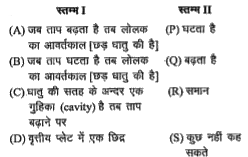 स्तम्भ I स्तम्भ II
(A) जब ताप बढ़ता है तब लोलक (P) घटता है
का आवर्तकाल [छड़ धातु की है]
(B) जब ताप घटता है तब लोलक (Q) बढ़ता है
का आवर्तकाल [छड़ धातु की है]
(C) धातु की सतह के अन्दर एक (R) समान
गुहिका (cavity) है तब ताप
बढ़ाने पर
(D) वृत्तीय प्लेट में एक छिद्र (S) कुछ नहीं कह
सकते